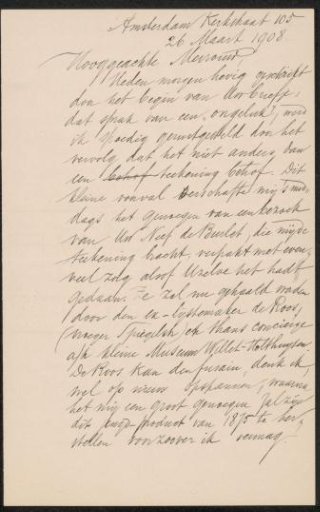 Amsterdam Kerkstraat 105
26 Maart 1908
Hooggeachte Mevrouw,
Heden morgen hevig
door het begin van Uw briefje,
dat sprak van een "ongeluk", werd
ik spoedig gerustgesteld door het
vervolg dat het niet anders dan
een teekening betrof. Dit
kleine voorval verschafte mij 's mid-
dags het genoegen van een bezoek
van Uw Neef de Beulet, die mij de
teekening bracht, verpakt met even-
veel zorg alsof Uzelve het hadt
gedaan. Ze zal nu gehaald worden
door den ex-lystemaker de Roos,
(vroeger Spiegelstr.) en thans concierge
a/h kleine Museum Willet-Holthuysen
De Roos kan den fusain, denk ik,
wel op nieuw opspannen, waarna
het mij een groot genoegen zal zijn
dit product van 1875 te her-
stellen voorzoover ik vermag.